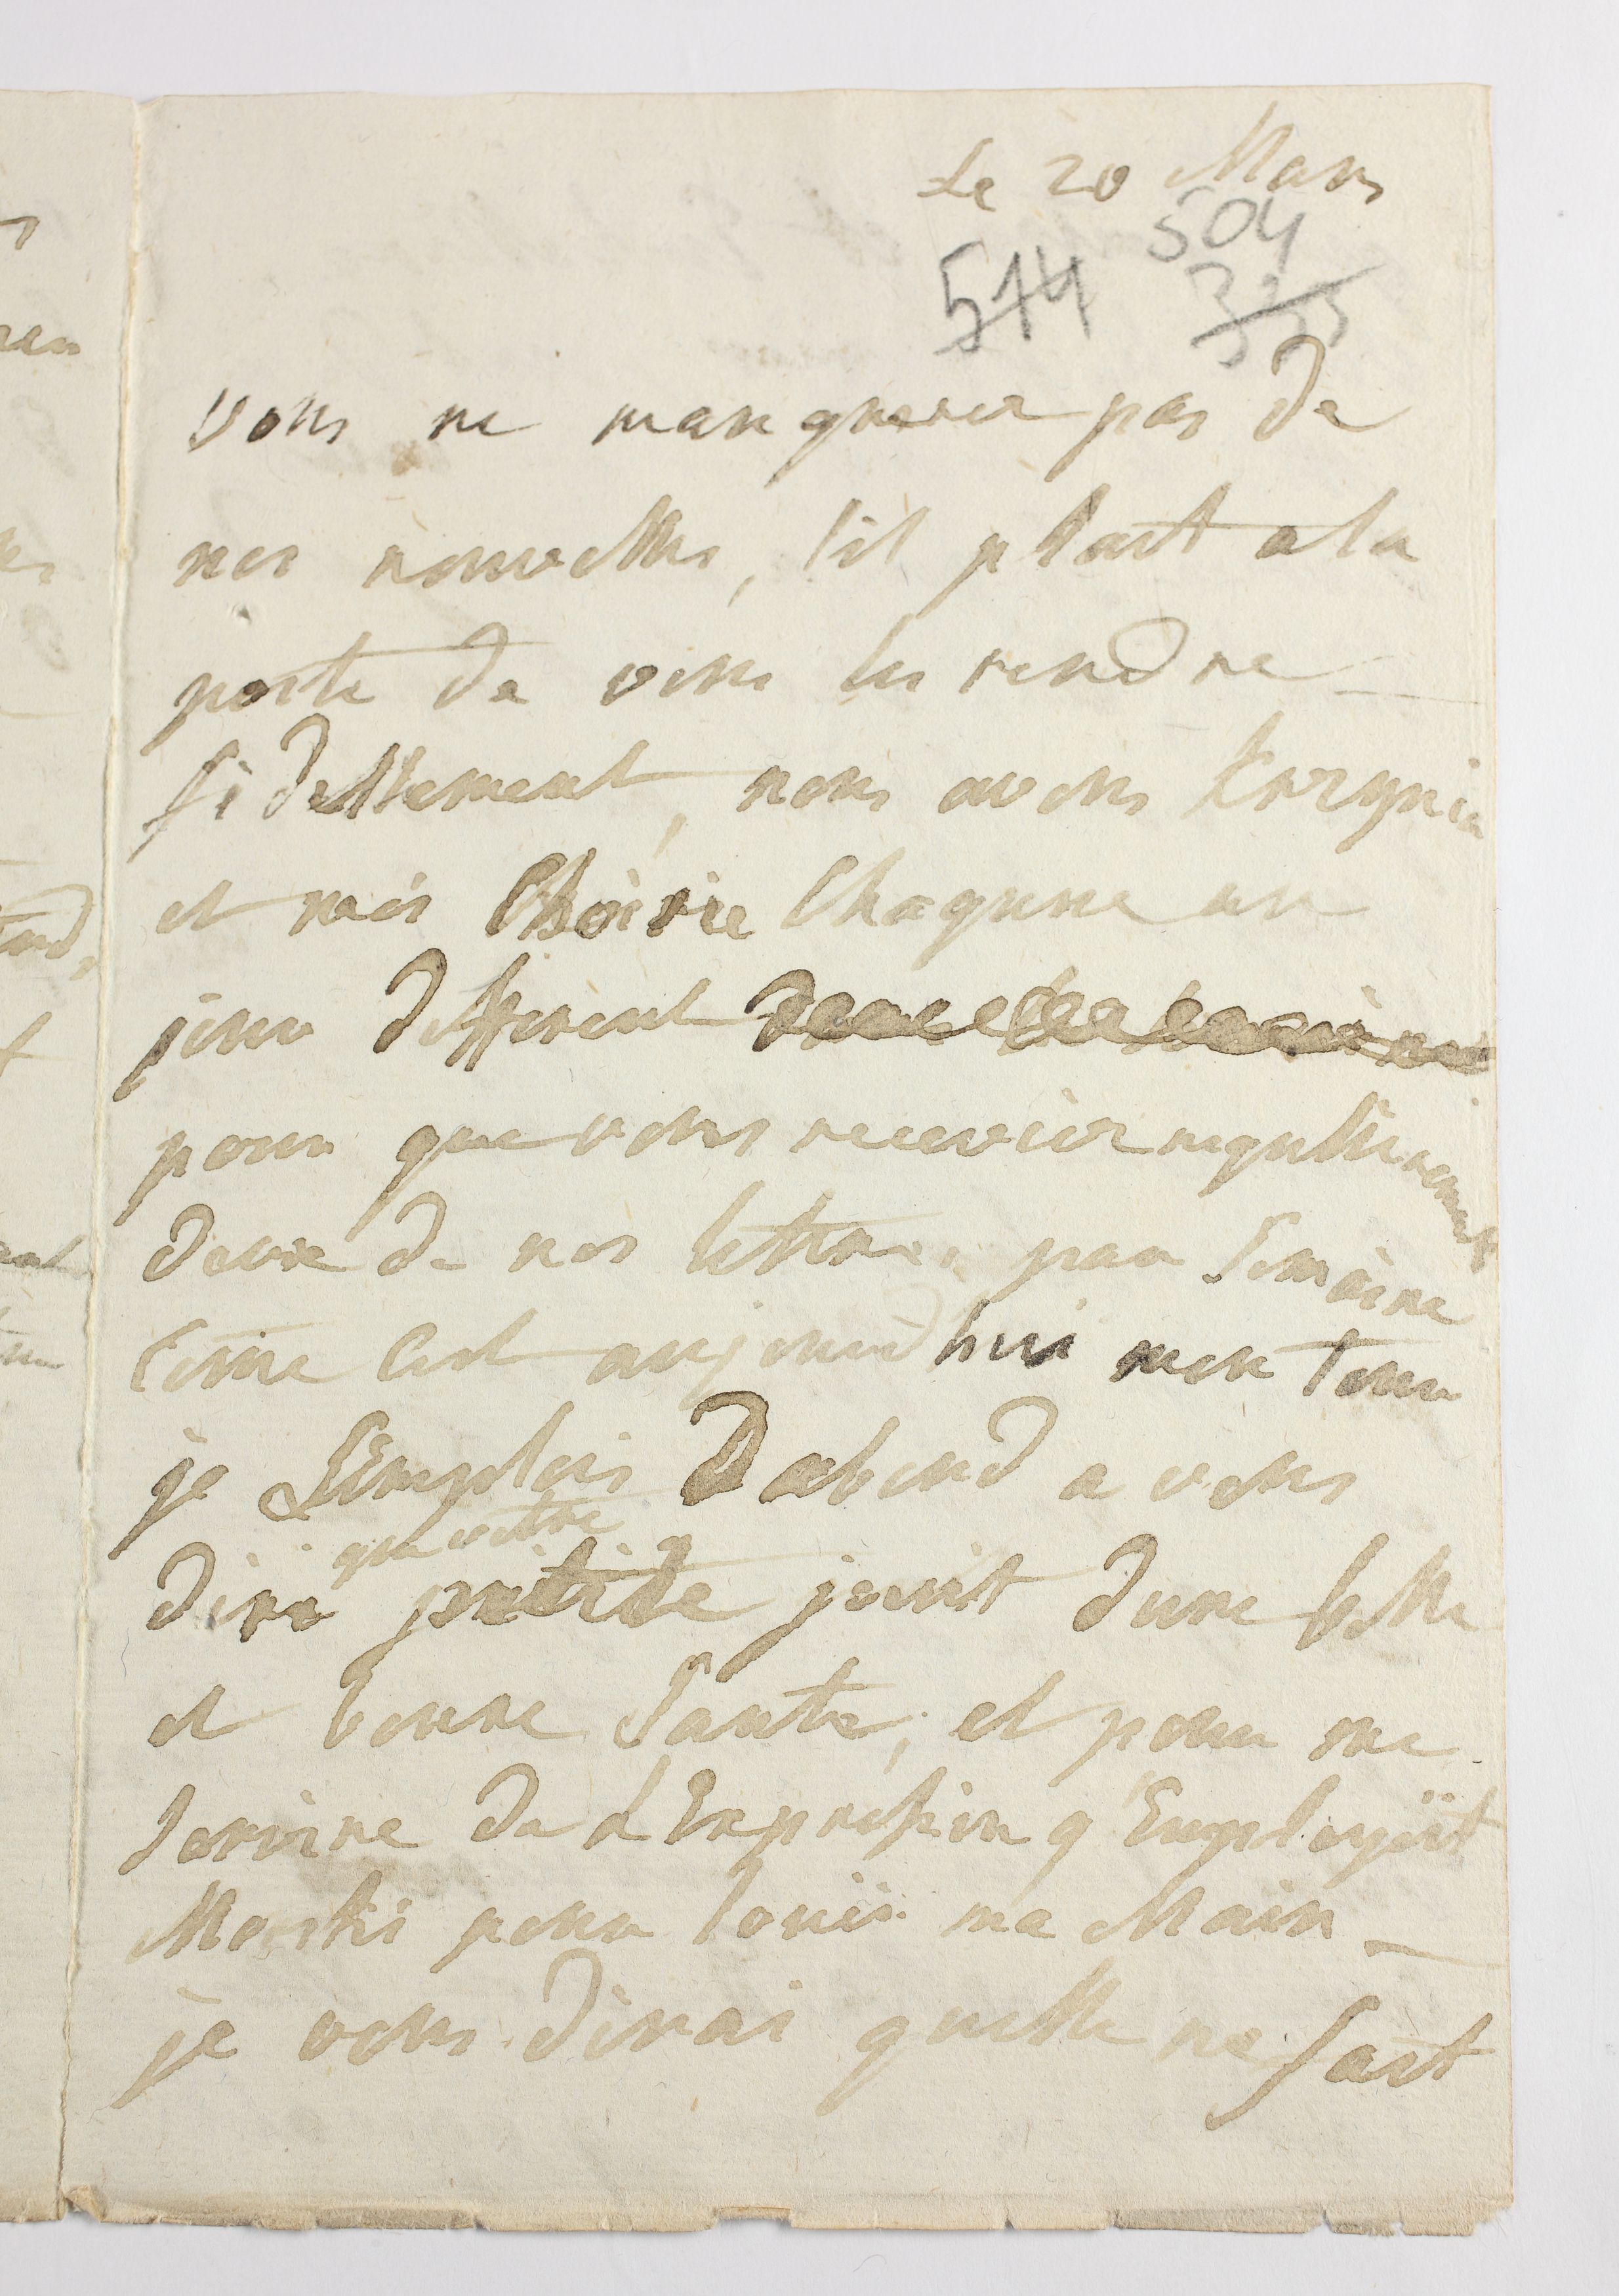 Le 20 Mars
504
514
vous ne manquerez pas de
nos nouvelles, s'il plait a la
poste de vous les rendre
fidellement, nous avons
et moi Choisie Chaqune un
jour different
pour que vous recevier regullierement
deux de nos lettres par Semaine
Come C'est aujourdhui mon Tour
je L'Emplois D'abord a vous
dire que votre petite jouit d'une belle
et bonne Santé, et pour me
servire de L'Expression q'Employoit
pour louer ma Main
je vous dirai quelle ne Sait